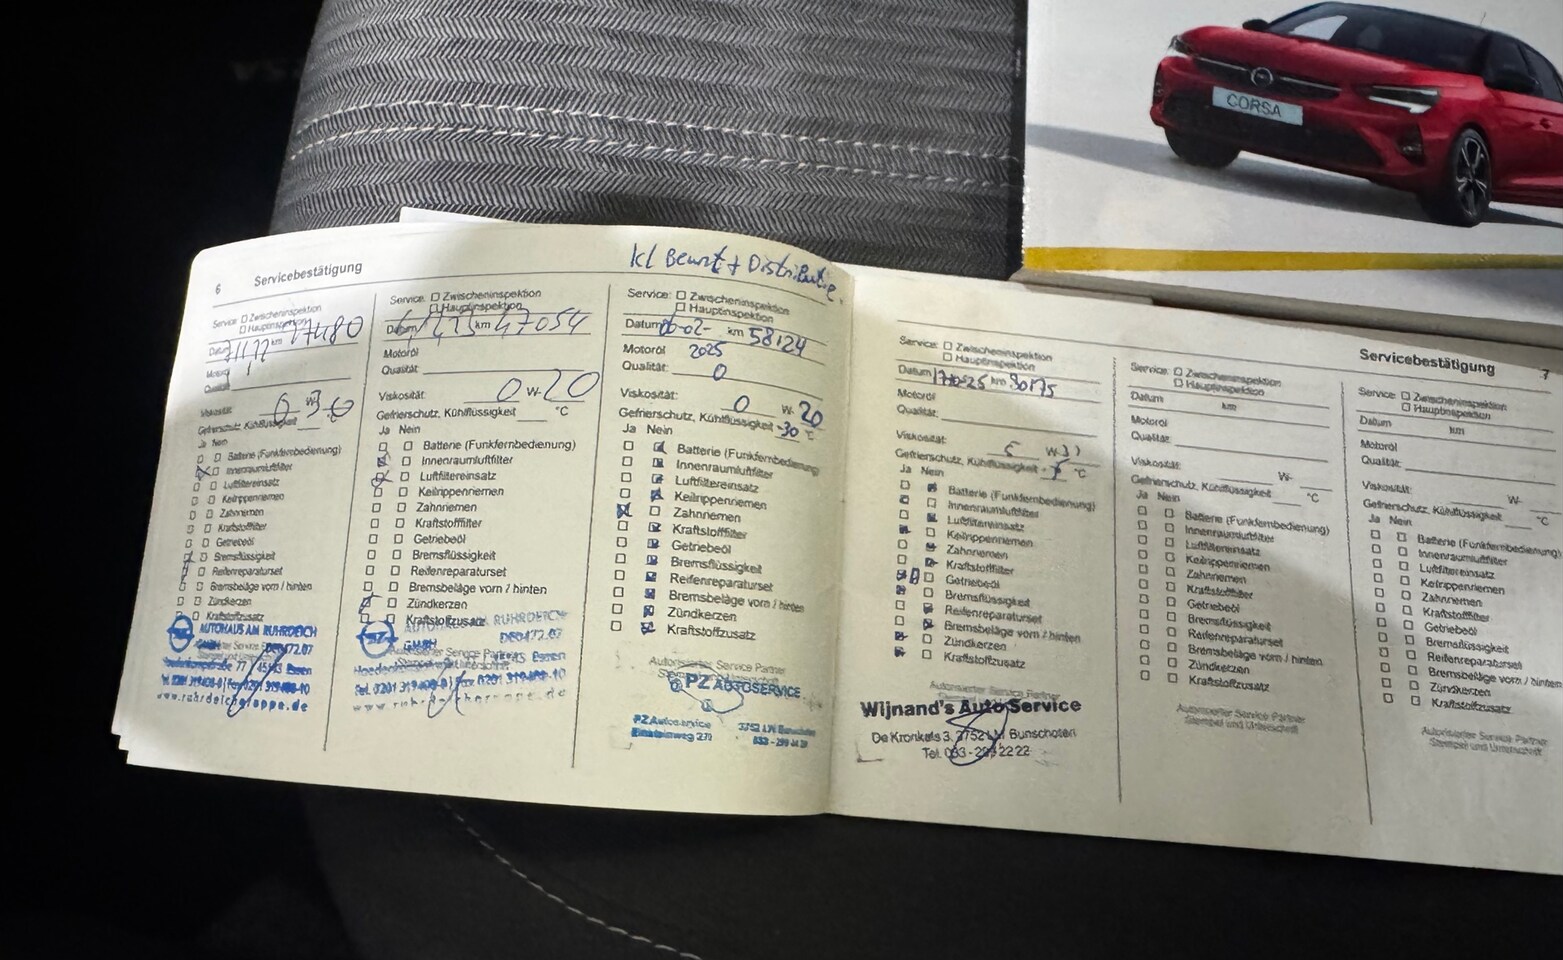 CORSA
6 Servicebestätigung
kl Beurt + Distributie
Service: Zwischeninspektion
Hauptinspektion
Datum km 27480
Motoröl
Qualität:
Viskosität: 0 W-30
Gefrierschutz, Kühlflüssigkeit °C
Ja Nein
Batterie (Funkfernbedienung)
Innenraumluftfilter
Luftfiltereinsatz
Keilrippenriemen
Zahnriemen
Kraftstofffilter
Getriebeöl
Bremsflüssigkeit
Reifenreparaturset
Bremsbeläge vorn / hinten
Zündkerzen
Kraftstoffzusatz
AUTOHAUS AM RUHRDEICH
GmbH
45143 Essen
www.ruhrdeichgruppe.de
Service: Zwischeninspektion
Hauptinspektion
Datum km 47054
Motoröl
Qualität:
Viskosität: 0 W-20
Gefrierschutz, Kühlflüssigkeit °C
Ja Nein
Batterie (Funkfernbedienung)
Innenraumluftfilter
Luftfiltereinsatz
Keilrippenriemen
Zahnriemen
Kraftstofffilter
Getriebeöl
Bremsflüssigkeit
Reifenreparaturset
Bremsbeläge vorn / hinten
Zündkerzen
Kraftstoffzusatz
AUTOHAUS RUHRDEICH
GmbH
Essen
Service: Zwischeninspektion
Hauptinspektion
Datum 06-02- km 58124
Motoröl 2025
Qualität: 0
Viskosität: 0 W-20
Gefrierschutz, Kühlflüssigkeit -30 °C
Ja Nein
Batterie (Funkfernbedienung)
Innenraumluftfilter
Luftfiltereinsatz
Keilrippenriemen
Zahnriemen
Kraftstofffilter
Getriebeöl
Bremsflüssigkeit
Reifenreparaturset
Bremsbeläge vorn / hinten
Zündkerzen
Kraftstoffzusatz
Autorisierter Service Partner
PZ AUTOSERVICE
PZ Autoservice
Servicebestätigung 7
Service: Zwischeninspektion
Hauptinspektion
Datum km
Motoröl
Qualität:
Viskosität: 5 W
Gefrierschutz, Kühlflüssigkeit °C
Ja Nein
Batterie (Funkfernbedienung)
Innenraumluftfilter
Luftfiltereinsatz
Keilrippenriemen
Zahnriemen
Kraftstofffilter
Getriebeöl
Bremsflüssigkeit
Reifenreparaturset
Bremsbeläge vorn / hinten
Zündkerzen
Kraftstoffzusatz
Autorisierter Service Partner
Wijnand's Auto Service
De Kronkels 3, 3752 LM Bunschoten
Tel. 033 - 2222
Service: Zwischeninspektion
Hauptinspektion
Datum km
Motoröl
Qualität:
Viskosität: W-
Gefrierschutz, Kühlflüssigkeit °C
Ja Nein
Batterie (Funkfernbedienung)
Innenraumluftfilter
Luftfiltereinsatz
Keilrippenriemen
Zahnriemen
Kraftstofffilter
Getriebeöl
Bremsflüssigkeit
Reifenreparaturset
Bremsbeläge vorn / hinten
Zündkerzen
Kraftstoffzusatz
Autorisierter Service Partner
Stempel und Unterschrift
Service: Zwischeninspektion
Hauptinspektion
Datum km
Motoröl
Qualität:
Viskosität: W-
Gefrierschutz, Kühlflüssigkeit °C
Ja Nein
Batterie (Funkfernbedienung)
Innenraumluftfilter
Luftfiltereinsatz
Keilrippenriemen
Zahnriemen
Kraftstofffilter
Getriebeöl
Bremsflüssigkeit
Reifenreparaturset
Bremsbeläge vorn / hinten
Zündkerzen
Kraftstoffzusatz
Autorisierter Service Partner
Stempel und Unterschrift